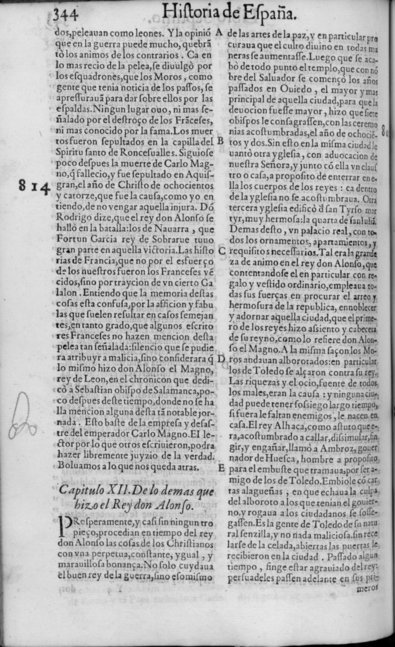 344
Historia de España.
dos, peleauan como leones. Y la opinió
que en la guerra puede mucho, quebrã
tò los animos de los contrarios. Ca en
lo mas recio de la pelea, se diuulgò por
los esquadrones, que los Moros, como
gente que tenia noticia de los passos, se
apressurauã para dar sobre ellos por las
espaldas. Ningun lugar ouo, ni mas se-
ñalado por el destroço de los Frãceses,
ni mas conocido por la fama. Los muer
tos fueron sepultados en la capilla del
Spiritu santo de Roncesualles. Siguiose
poco despues la muerte de Carlo Mag-
no, q̃ fallecio, y fue sepultado en Aquis-
814
gran, el año de Christo de ochocientos
y catorze, que fue la causa, como yo en
tiendo, de no vengar aquella injura. Dō
Rodrigo dize, que el rey don Alonso se
hallò en la batalla: los de Nauarra, que
Fortun Garcia rey de Sobrarue tuuo
gran parte en aquella victoria. Las histo
rias de Francia, que no por el esfuerço
de los nuestros fueron los Franceses vē
cidos, sino por traycion de vn cierto Ga
lalon. Entiendo que la memoria destas
cosas esta confusa, por la aficion y fabu
las que suelen resultar en casos semejan
tes, en tanto grado, que algunos escrito
res Franceses no hazen mencion desta
pelea tan señalada: silencio que se pudie
ra atribuyr a malicia, sino considerara q̃
lo mismo hizo don Alonso el Magno,
rey de Leon, en el chronicon que dedi-
cò a Sebastian obispo de Salamanca, po-
co despues deste tiempo, donde no se ha
lla mencion alguna desta tã notable jor-
nada. Esto baste de la empresa y desas-
tre del emperador Carlo Magno. El le-
ctor por lo que otros escriuieron, podra
hazer libremente juyzio de la verdad.
Boluamos a lo que nos queda atras.
Capitulo XII. De lo demas que
hizo el Rey don Alonso.
PResperamente, y casi sin ningun tro
pieço, procedian en tiempo del rey
don Alonso las cosas de los Christianos
con vna perpetua, constante, ygual, y
marauillosa bonança. No solo cuydaua
el buen rey de la guerra, sino esomismo
A
de las artes de la paz, y en particular pro
curaua que el culto diuino en todas ma
neras se aumentasse. Luego que se aca-
bò de todo punto el templo, que con nō
bre del Saluador se començò los años
passados en Ouiedo, el mayor y mas
principal de aquella ciudad, para que la
deuocion fuesse mayor, hizo que siete
obispos le consagrassen, con las ceremo
nias acostumbradas, el año de ochociē-
B
tos y dos. Sin esto en la misma ciudad le
uantò otra yglesia, con aduocacion de
nuestra Señora, y junto cō ella vn claus
tro o casa, a proposito de enterrar en e-
lla los cuerpos de los reyes: ca dentro
de la yglesia no se acostumbraua. Otra
tercera yglesia edificò d̃ san Tyrso mar
tyr, muy hermosa: la quarta de san Iuliã.
Demas desto, vn palacio real, con to-
dos los ornamentos, apartamentos, y
C
requisitos necessarios. Tal era la grande
za de animo en el rey don Alonso, que
contentandose el en particular con re-
galo y vestido ordinario, empleaua to-
das sus fuerças en procurar el arreo y
hermosura de la republica, ennoblecer
y adornar aquella ciudad, que el prime-
ro de los reyes hizo assiento y cabecera
de su reyno, como lo refiere don Alon-
so el Magno. A la misma sazon los Mo-
D
ros andauan alborotados: en particular
los de Toledo se alçaron contra su rey.
Las riquezas y el ocio, fuente de todos
los males, eran la causa: y ninguna ciu-
dad puede tener sossiego largo tiempo,
si fuera le faltan enemigos, le nacen en
casa. El rey Alhaca, como astuto que e-
ra, acostumbrado a callar, dissimular, fin
gir, y engañar, llamò a Ambroz, gouer
nador de Huesca, hombre a proposito
E
para el embuste que tramaua, por ser a-
migo de los de Toledo. Embiole cō car-
tas alagueñas, en que echaua la culpa
del alboroto a los que tenian el gouier-
no, y rogaua a los ciudadanos se sosse-
gassen. Es la gente de Toledo de su natu
ral senzilla, y no nada maliciosa. sin rece
larse de la celada, abiertas las puertas le
recibieron en la ciudad. Passado algun
tiempo, finge estar agrauiado del rey:
persuadeles passen adelante en sus pri
meros